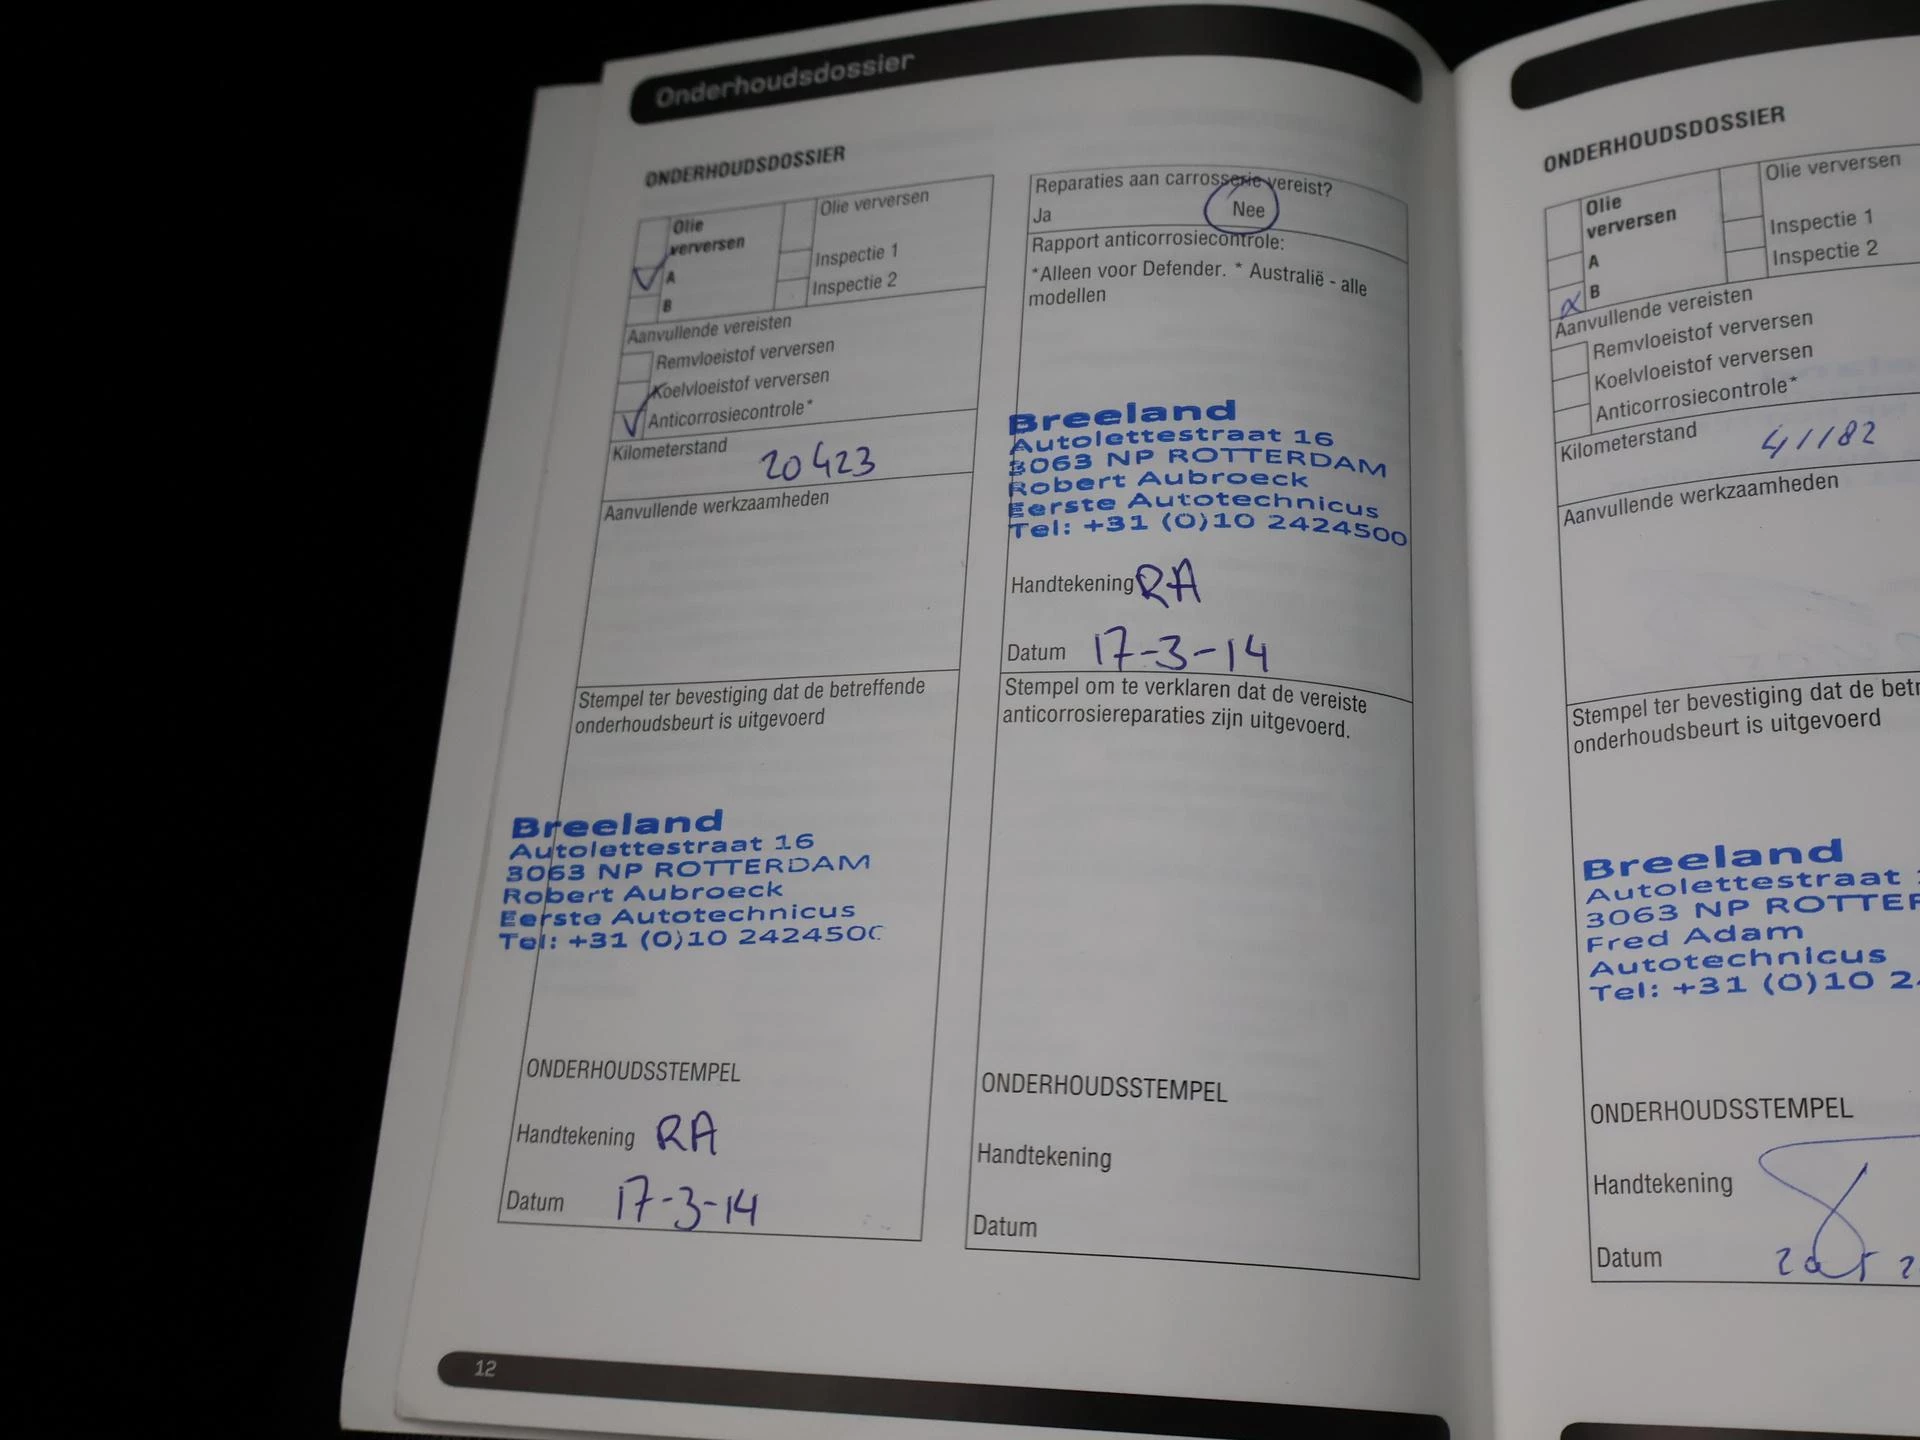 Onderhoudsdossier
ONDERHOUDSDOSSIER
Olie verversen
A
B
Olie verversen
Inspectie 1
Inspectie 2
Aanvullende vereisten
Remvloeistof verversen
Koelvloeistof verversen
Anticorrosiecontrole*
Kilometerstand 20 423
Aanvullende werkzaamheden
Stempel ter bevestiging dat de betreffende
onderhoudsbeurt is uitgevoerd
Breeland
Autolettestraat 16
3063 NP ROTTERDAM
Robert Aubroeck
Eerste Autotechnicus
Tel: +31 (0)10 2424500
ONDERHOUDSSTEMPEL
Handtekening RA
Datum 17-3-14
Reparaties aan carrosserie vereist?
Ja Nee
Rapport anticorrosiecontrole:
*Alleen voor Defender. * Australië - alle
modellen
Breeland
Autolettestraat 16
3063 NP ROTTERDAM
Robert Aubroeck
Eerste Autotechnicus
Tel: +31 (0)10 2424500
Handtekening RA
Datum 17-3-14
Stempel om te verklaren dat de vereiste
anticorrosiereparaties zijn uitgevoerd.
ONDERHOUDSSTEMPEL
Handtekening
Datum
12
ONDERHOUDSDOSSIER
Olie
verversen
A
B
Olie verversen
Inspectie 1
Inspectie 2
Aanvullende vereisten
Remvloeistof verversen
Koelvloeistof verversen
Anticorrosiecontrole*
Kilometerstand 41182
Aanvullende werkzaamheden
Stempel ter bevestiging dat de
onderhoudsbeurt is uitgevoerd
Breeland
Autolettestraat
3063 NP
Fred Adam
Autotechnicus
Tel: +31 (0)10
ONDERHOUDSSTEMPEL
Handtekening
Datum